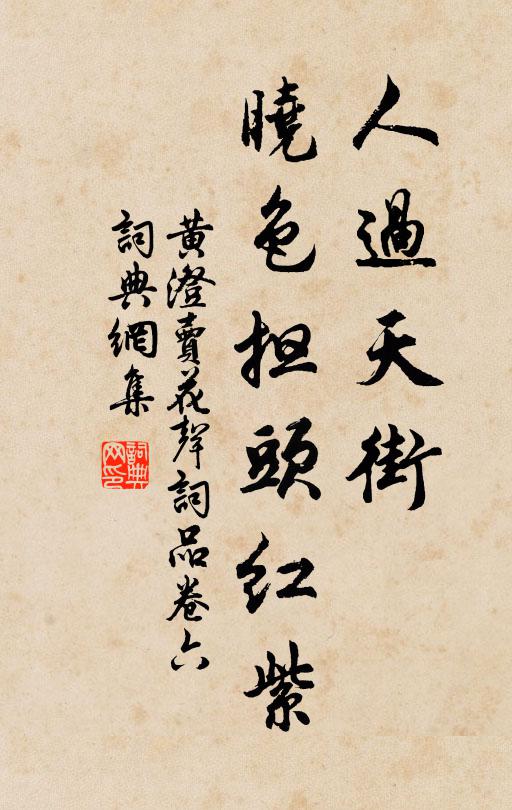 人過天街
曉色担頭红紫
黃澄賣花聲詞品卷六
詞典網集
詞典网印